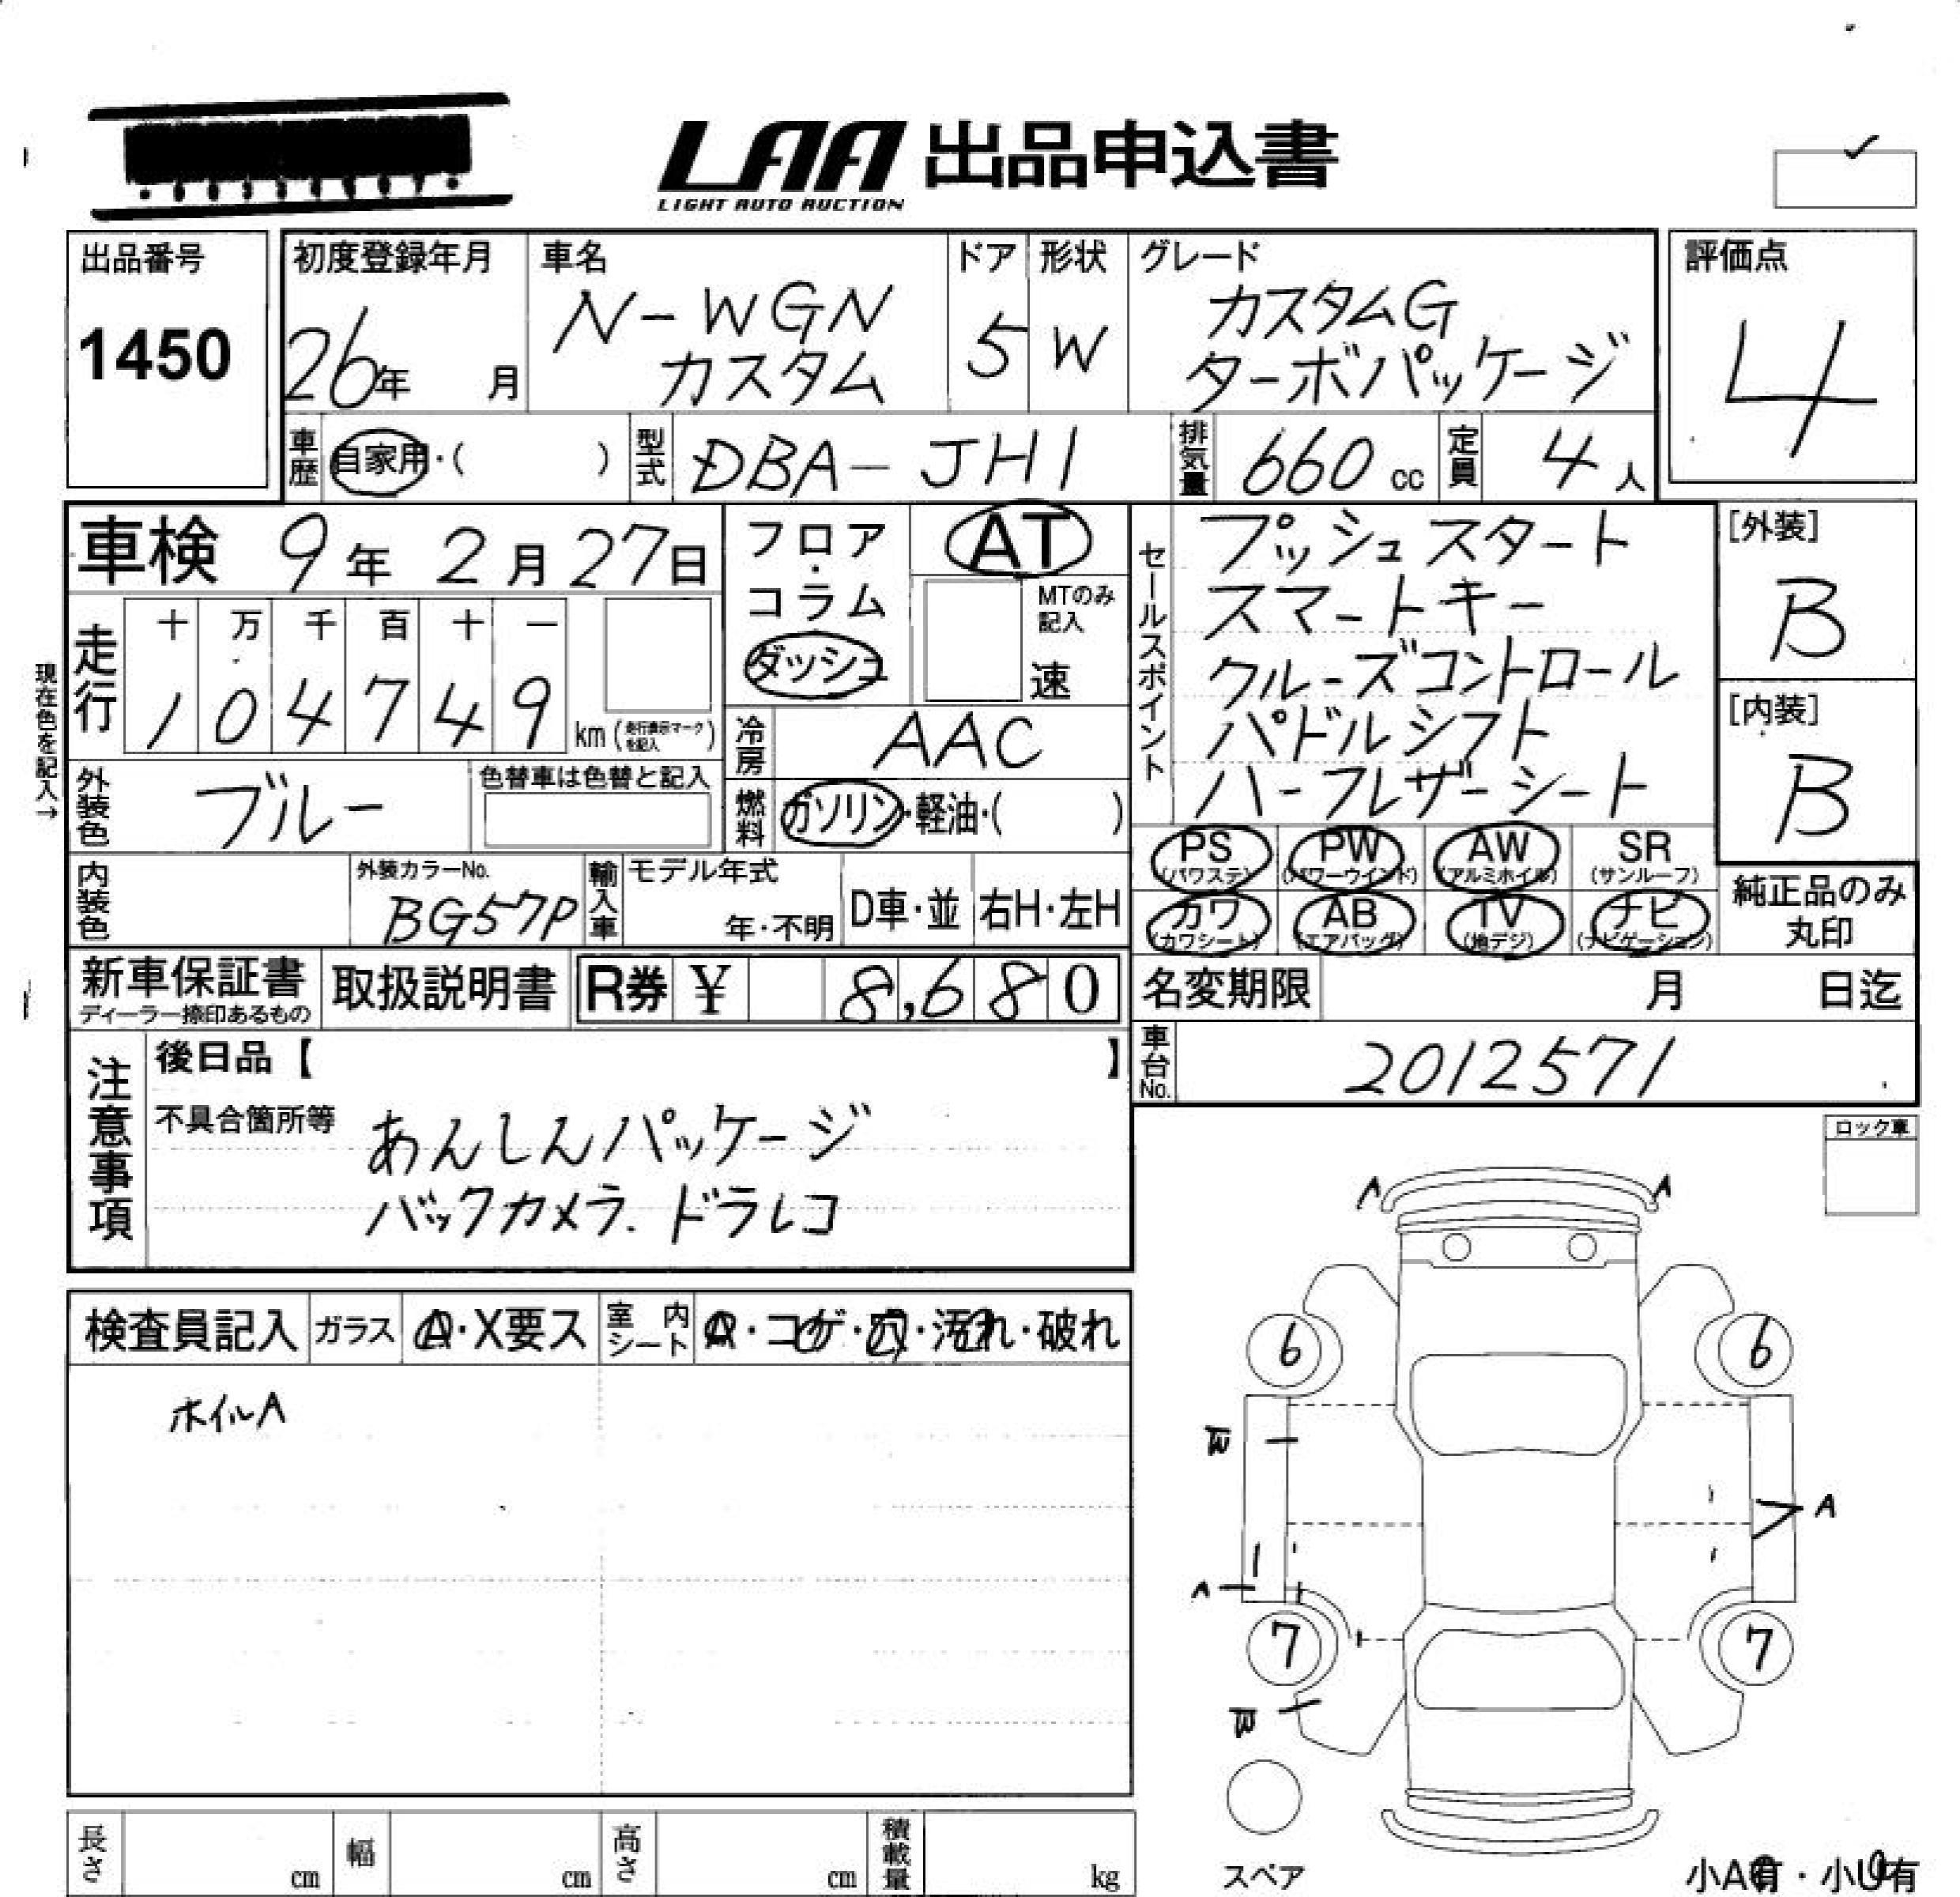 LAA 出品申込書
LIGHT AUTO AUCTION
出品番号
1450
初度登録年月
26年 月
車名
N-WGN
カスタム
ドア
5
形状
W
グレード
カスタムG
ターボパッケージ
評価点
4
車歴 自家用・( )
型式 DBA-JH1
排気量 660 cc
定員 4人
車検 9年 2月27日
走行 十 万 千 百 十 一
1 0 4 7 4 9 km (走行表示マークを記入)
現在色を記入→
外装色 ブルー
色替車は色替と記入
内装色
外装カラーNo.
BG57P
輸入車
モデル年式
年・不明
D車・並
右H・左H
フロア
・
コラム
ダッシュ
AT
MTのみ
記入
速
冷房 AAC
燃料 ガソリン・軽油・( )
セールスポイント
プッシュスタート
スマートキー
クルーズコントロール
パドルシフト
ハーフレザーシート
[外装]
B
[内装]
B
PS (パワステ)
PW (パワーウインド)
AW (アルミホイル)
SR (サンルーフ)
カワ (カワシート)
AB (エアバッグ)
TV (地デジ)
ナビ (ナビゲーション)
純正品のみ
丸印
新車保証書
ディーラー捺印あるもの
取扱説明書
R券 ¥ 8,680
名変期限 月 日迄
車台No. 2012571
注意事項
後日品【 】
不具合箇所等
あんしんパッケージ
バックカメラ.ドラレコ
ロック車
検査員記入
ガラス A・X要ス
室内シート A・コゲ・穴・汚れ・破れ
ホイルA
A A
6 6
W
A
A
7 7
W
スペア
長さ cm
幅 cm
高さ cm
積載量 kg
小A有・小U有